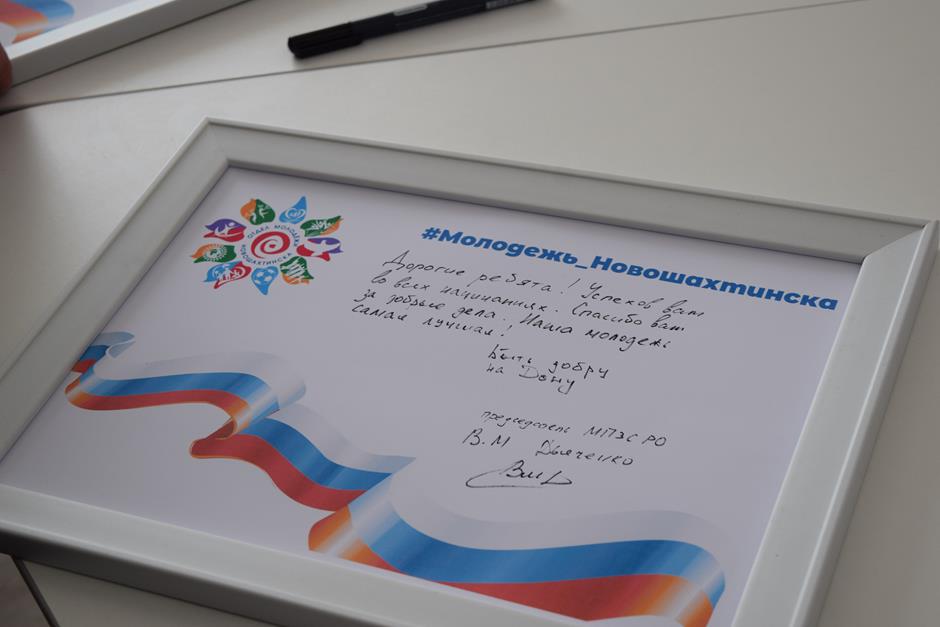 ОТДЕЛ МОЛОДЕЖИ
НОВОШАХТИНСКА
#Молодежь_Новошахтинска
Дорогие ребята! Успехов вам
во всех начинаниях. Спасибо вам
за добрые дела. Наша молодежь
самая лучшая!
Быть добру
на Дону
председатель МПЭС РО
В.М Дьяченко